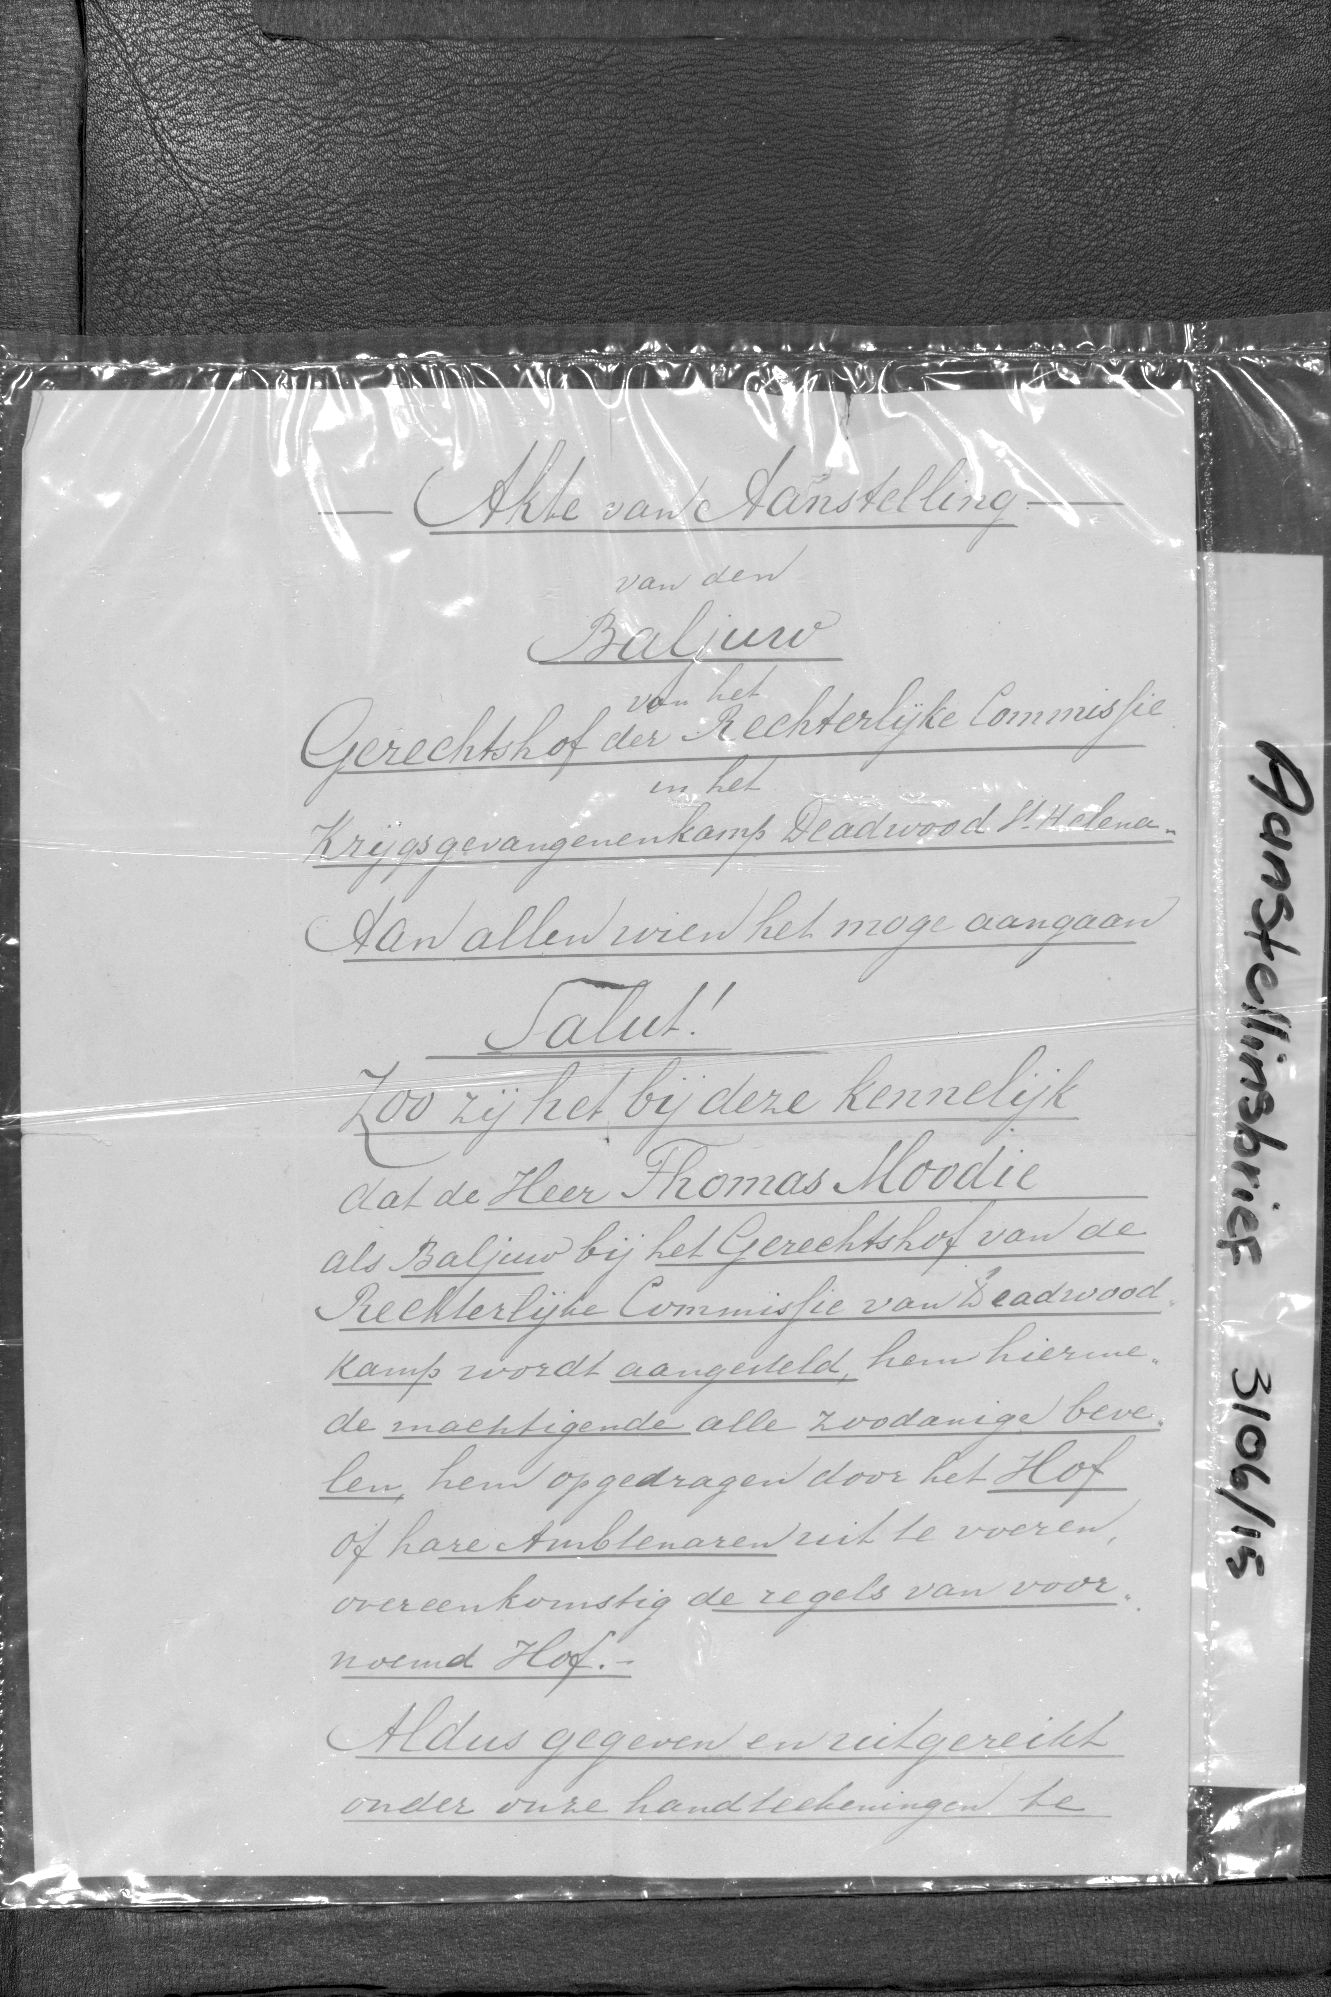 Akte van Aanstelling
van den
Baljuw
van het
Gerechtshof der Rechterlijke Commissie
in het
Krijgsgevangenenkamp Deadwood St. Helena.
Aan allen wien het moge aangaan
Salut!
Zoo zij het bij deze kennelijk
dat de Heer Thomas Moodie
als Baljuw bij het Gerechtshof van de
Rechterlijke Commissie van Deadwood
kamp wordt aangesteld, hem hierme„
de machtigende alle zoodanige beve„
len, hem opgedragen door het Hof
of hare Ambtenaren uit te voeren,
overeenkomstig de regels van voor„
noemd Hof.-
Aldus gegeven en uitgereikt
onder onze handteekeningen te
Aanstellinsbrief 3106/15